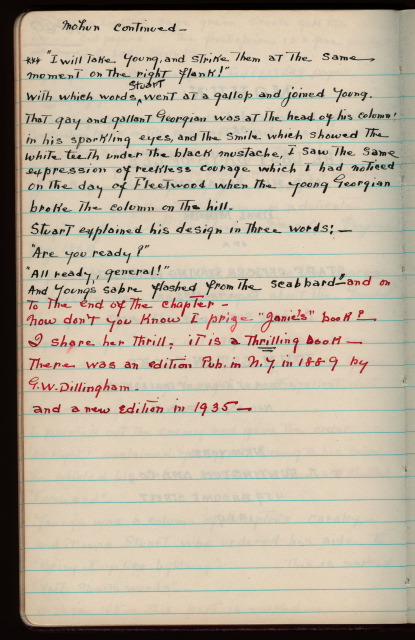 Mohun continued—
*** "I will take Young, and strike them at the same
moment on the right flank!"
Stuart
With which words, went at a gallop and joined Young.
That gay and gallant Georgian was at the head of his column;
in his sparkling eyes, and the smile which showed the
white teeth under the black mustache, I saw the same
expression of reckless courage which I had noticed
on the day of Fleetwood when the young Georgian
broke the column on the hill.
Stuart explained his design in three words:—
"Are you ready?"
"All ready, general!"
And Young's sabre flashed from the scabbard" and on
to the end of the chapter—
now don't you know I prize "Janie's" book?
I share her thrill, it is a Thrilling book—
There was an edition Pub. in N.Y. in 1889 by
G.W. Dillingham.
and a new edition in 1935—